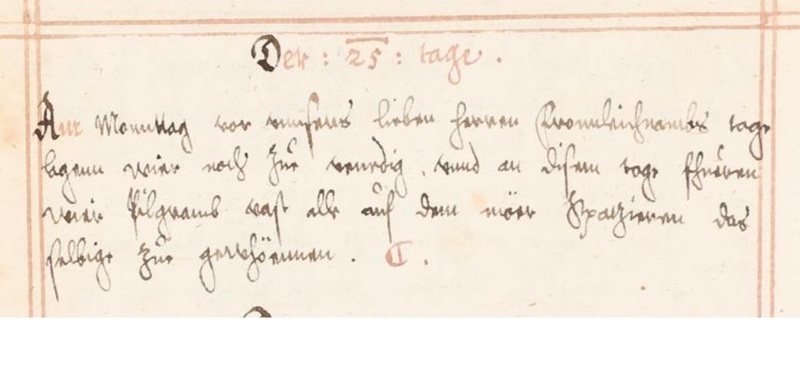 Der : 25 : tage .
Am Monnttag vor vnnsers lieben herren Fronnleichnambs tage
ligenn wier noch zue venedig . vnnd an disem tage fhueren
wier Pilgramb vast alle auf dem mör Spatzieren das
selbige zue gewhöennen . C .